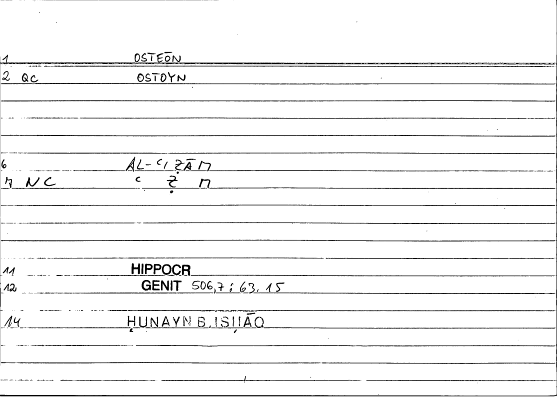 1 OSTEŌN
2 QC OSTOYN
6 AL-ʿIẒĀM
7 NC ʿ Ẓ M
11 HIPPOCR
12 GENIT 506,7 ; 63.15
14 ḤUNAYN B. ISḤĀQ